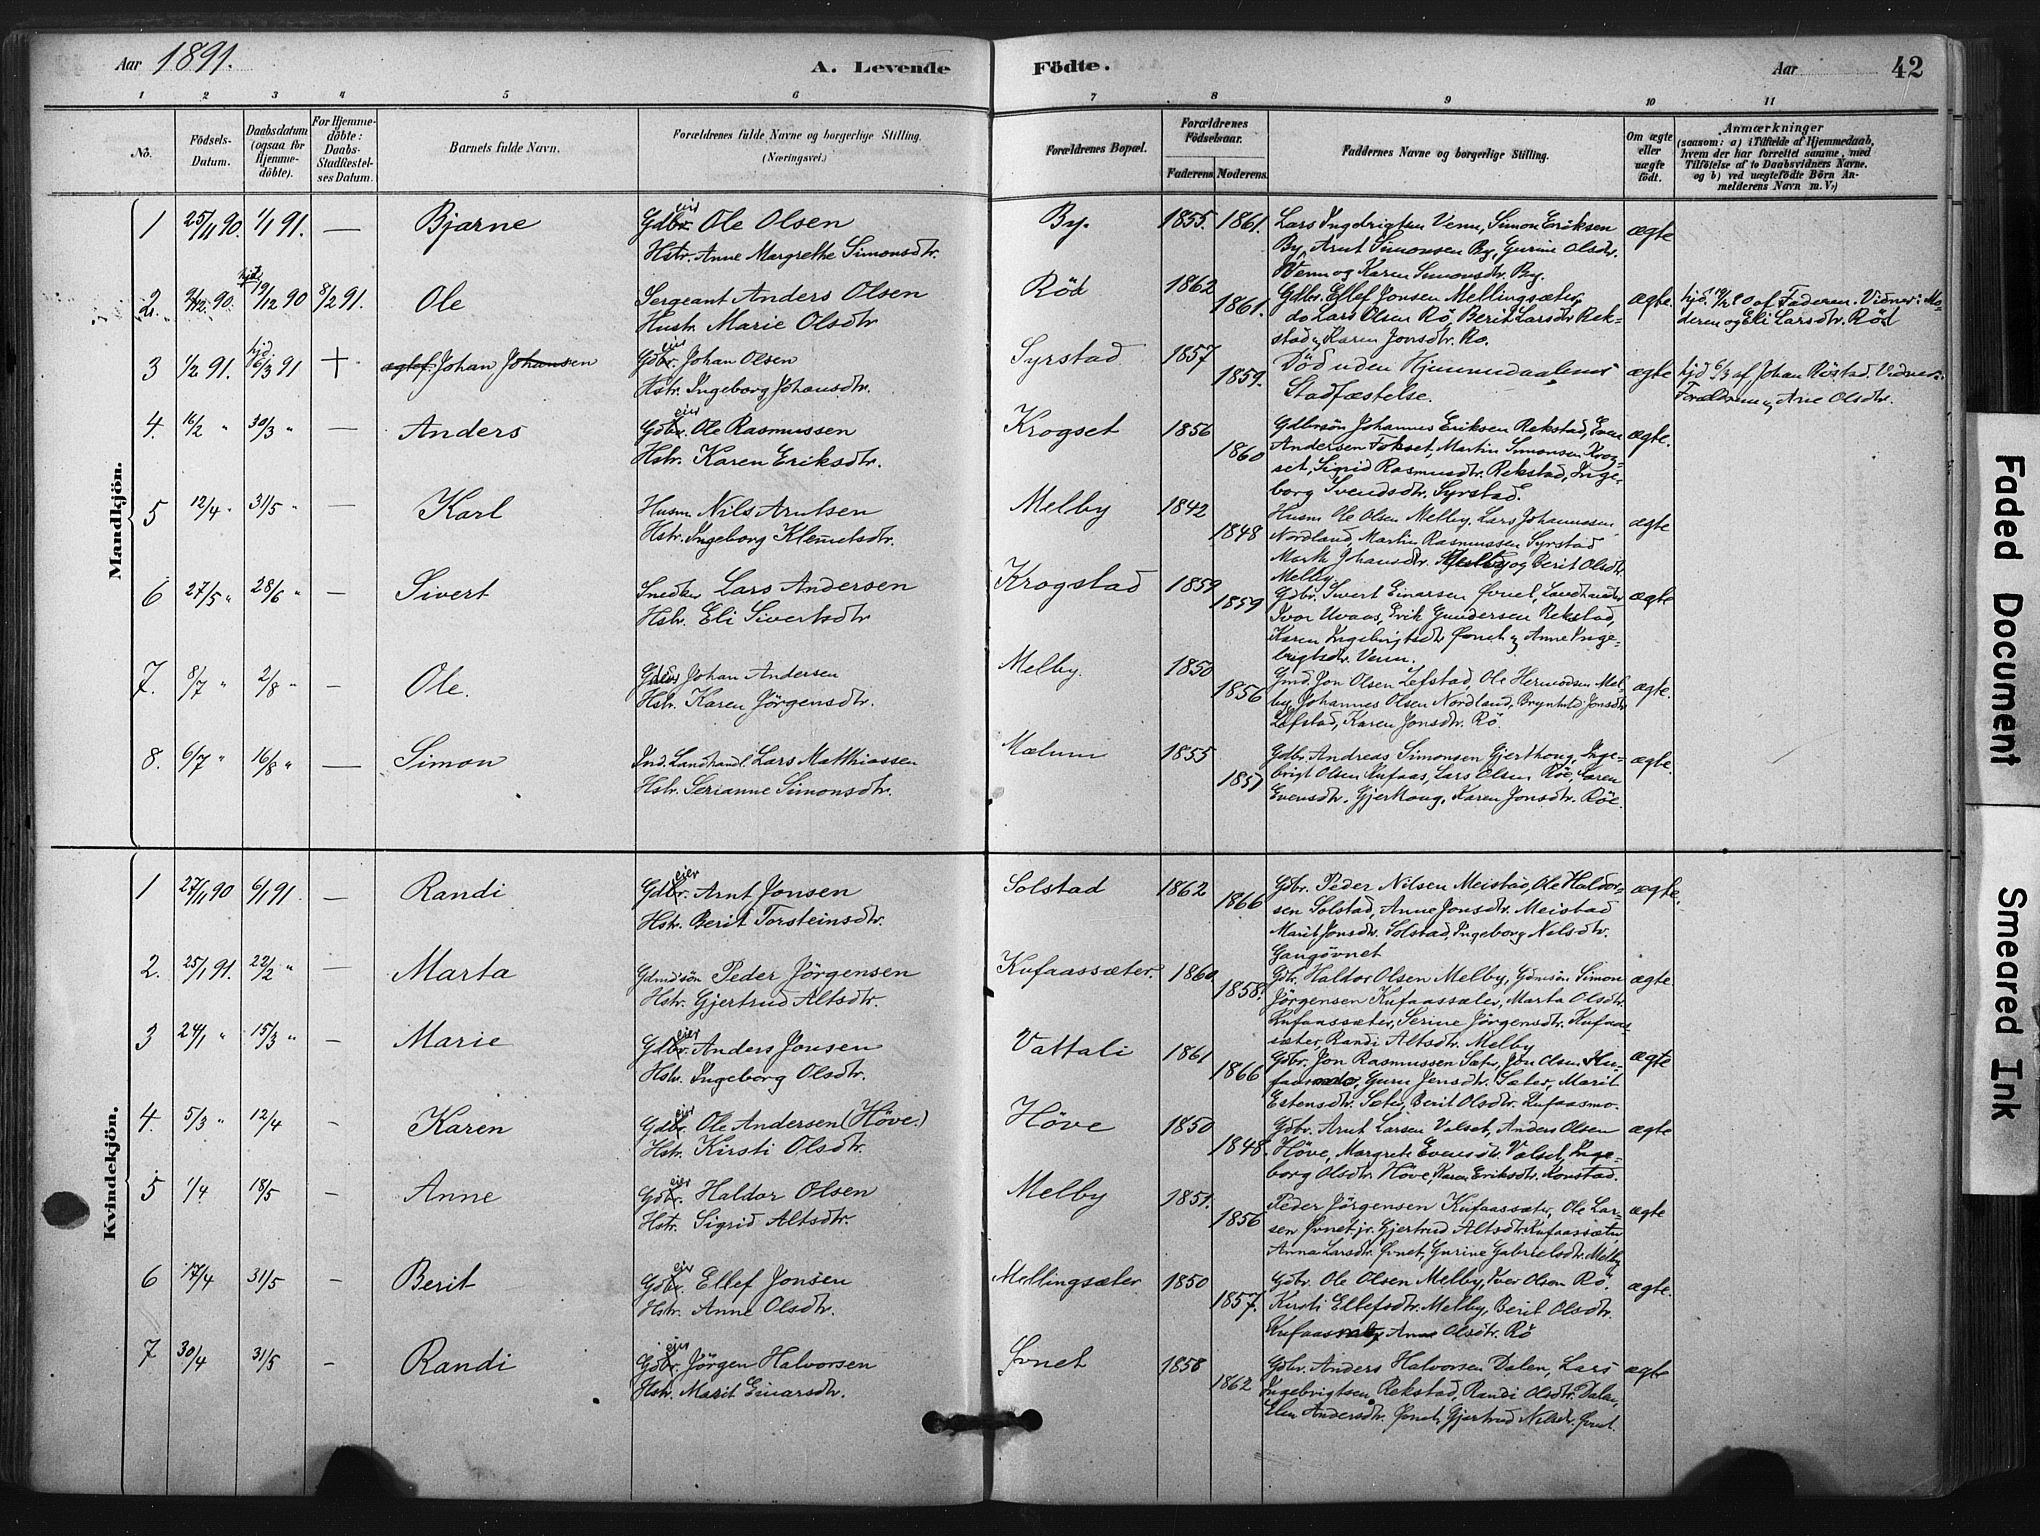 Aar 1891. A. Levende Födte. Aar 42
1 2 3 4 5 6 7 8 9 10 11
No.
Födsels-Datum.
Daabsdatum (ogsaa for Hjemme-döbte).
For Hjemme-döbte: Daabs-Stadfæstel-ses Datum.
Barnets fulde Navn.
Forældrenes fulde Navne og borgerlige Stilling. (Næringsvei.)
Forældrenes Bopæl.
Forældrenes Födselsaar.
Faderens Moderens
Faddernes Navne og borgerlige Stilling.
Om ægte eller uægte födt.
Anmærkninger
(saasom: a) i Tilfælde af Hjemmedaab,
hvem der har forrettet samme, med
Tilföielse af to Daabsvidners Navne.
og b) ved uægtefödte Börn An-
melderens Navn m. V.)
Mandkjön.
1 25/11 90. 1/1 91. — Bjarne Gdbr. eier Ole Olsen By. 1855. 1861. Lars Ingebrigtsen Venn, Simon Eriksen ægte
Hstr. Anne Margrethe Simonsdtr. By, Arnt Simonsen By, Gurine Olsdtr.
Venn og Karen Simonsdtr. By.
2. 9/12 90. hjd 19/12 90 8/2 91. Ole Sergeant Anders Olsen Röd 1862 1861. Gdbr. Ellef Jonsen Mellingsæter, ægte. hjd. 19/12 90 af Faderen. Vidner: Mo-
Hustr. Marie Olsdtr do Lars Olsen Rö, Berit Larsdtr Rek- deren og Eli Larsdtr. Röd
stad og Karen Jonsdtr. Rö.
3 1/2 91. hjd 6/3 91 † Johan Johansen Gdbr. eier Johan Olsen Syrstad 1857 1859. Död uden Hjemmedaabens ægte hjd 6/3 af Johan Röstad. Vidner:
Hstr. Ingeborg Johansdtr. Stadfæstelse. Forældrene og Arne Olsdtr.
4. 16/2 " 30/3 " — Anders Gdbr. eier Ole Rasmussen Krogset 1856 1860 Gdbrsön Johannes Eriksen Rekstad, Even ægte.
Hstr. Karen Eriksdtr. Andersen Fokset, Martin Simonsen Krog-
set, Sigrid Rasmusdtr. Rekstad, Inge-
borg Svendsdtr. Syrstad.
5 12/4 " 31/5 " — Karl Husm Nils Arntsen Melby 1842 1848 Husm Ole Olsen Melby, Lars Johannssen ægte
Hstr. Ingeborg Klemetsdtr. Nordland, Martin Rasmussen Syrstad
Marth Johansdtr. Melby og Berit Olsdtr.
Melby
6 27/5 " 28/6 " — Sivert Snedker Lars Andersen Krogstad 1859 1859 Gdbr. Sivert Einarsen Övnet, Landhandler ægte
Hstr. Eli Sivertsdtr Ivar Uvaas, Erik Gundersen Rekstad,
Karen Ingebrigtsdtr Övnet og Anne Inge-
brigtsdtr. Venn.
7. 8/7 " 2/8 " — Ole. Johan Andersen Melby. 1850 1856 Gmd. Jon Olsen Lefstad, Ole Hermodsen Mel- ægte.
Hstr. Karen Jörgensdtr. by, Johannes Olsen Nordland, Brynhild Jonsdtr
Lefstad, Karen Jonsdtr. Rö
8. 6/7 " 16/8 " — Simon Ind. Landhandl. Lars Matthiassen Mælum 1855 1857 Gdbr Andreas Simonsen Gjerthaug, Inge- ægte.
Hstr. Serianne Simonsdtr. brigt Olsen Kufaas, Lars Olsen Röe, Karen
Evensdtr. Gjerthaug, Karen Jonsdtr. Röe.
Kvindekjön.
1 27/11 90 6/1 91. — Randi Gdbr. eier Arnt Jonsen Solstad 1862 1866 Gdbr. Peder Nilsen Meistad, Ole Haldor- ægte.
Hstr. Berit Torsteinsdtr. sen Solstad, Anne Jonsdtr. Meistad
Marit Jonsdtr. Solstad, Ingeborg Nilsdtr.
Gangövnet
2. 25/1 91. 22/2 " — Marta Gdmdsön Peder Jörgensen Kufaassæter. 1860 1858. Gbr. Haldor Olsen Melby, Gdmsön Simon ægte
Hstr. Gjertrud Altsdtr. Jörgensen Kufaassæter, Marta Olsdtr.
Kufaassæter, Serine Jörgensdtr. Kufaas-
sæter, Randi Altsdtr. Melby
3 24/1 " 15/3 " — Marie Gdbr. eier Anders Jonsen Vattali 1861 1866 Gdbr. Jon Rasmussen Sæter, Jon Olsen Ku- ægte
Hstr. Ingeborg Olsdtr. faasmo, Guru Jensdtr. Sæter, Marit
Estensdtr. Sæter, Berit Olsdtr. Kufaasmo.
4. 5/3 " 12/4 — Karen Gdbr. eier Ole Andersen (Höve.) Höve 1850 1848. Gdbr. Arnt Larsen Valset, Anders Olsen ægte
Hstr. Kirsti Olsdtr. Höve, Margrete Evensdtr. Valset, Inge-
borg Olsdtr. Höve, Karen Eriksdtr. Konstad.
5 1/4 18/5 — Anne Gdbr. eier Haldor Olsen Melby 1851. 1856 Peder Jörgensen Kufaassæter, Ole Lar- ægte
Hstr. Sigrid Altsdtr. sen Övnet jr. Gjertrud Altsdtr. Kufaassæter,
Anna Larsdtr. Övnet, Gurine Gabrielsdtr. Melby
6 17/4 31/5 — Berit Gdbr. eier Ellef Jonsen Mellingsæter 1850 1857. Gdbr. Ole Olsen Melby, Iver Olsen Rö. ægte.
Hstr. Anne Olsdtr. Kirsti Ellefsdtr. Melby, Berit Olsdtr.
Anne Olsdtr. Rö
7 30/4 31/5 — Randi Gdbr. eier Jörgen Halvorsen Övnet 1858 1862 Gdbr. Anders Halvorsen Dalen, Lars ægte
Hstr. Marit Einarsdtr. Ingebrigtsen Rekstad, Randi Olsdtr. Dalen,
Elen Andersdtr. Övnet, Gjertrud Nilsdtr. Övnet.
Faded Document
Smeared Ink